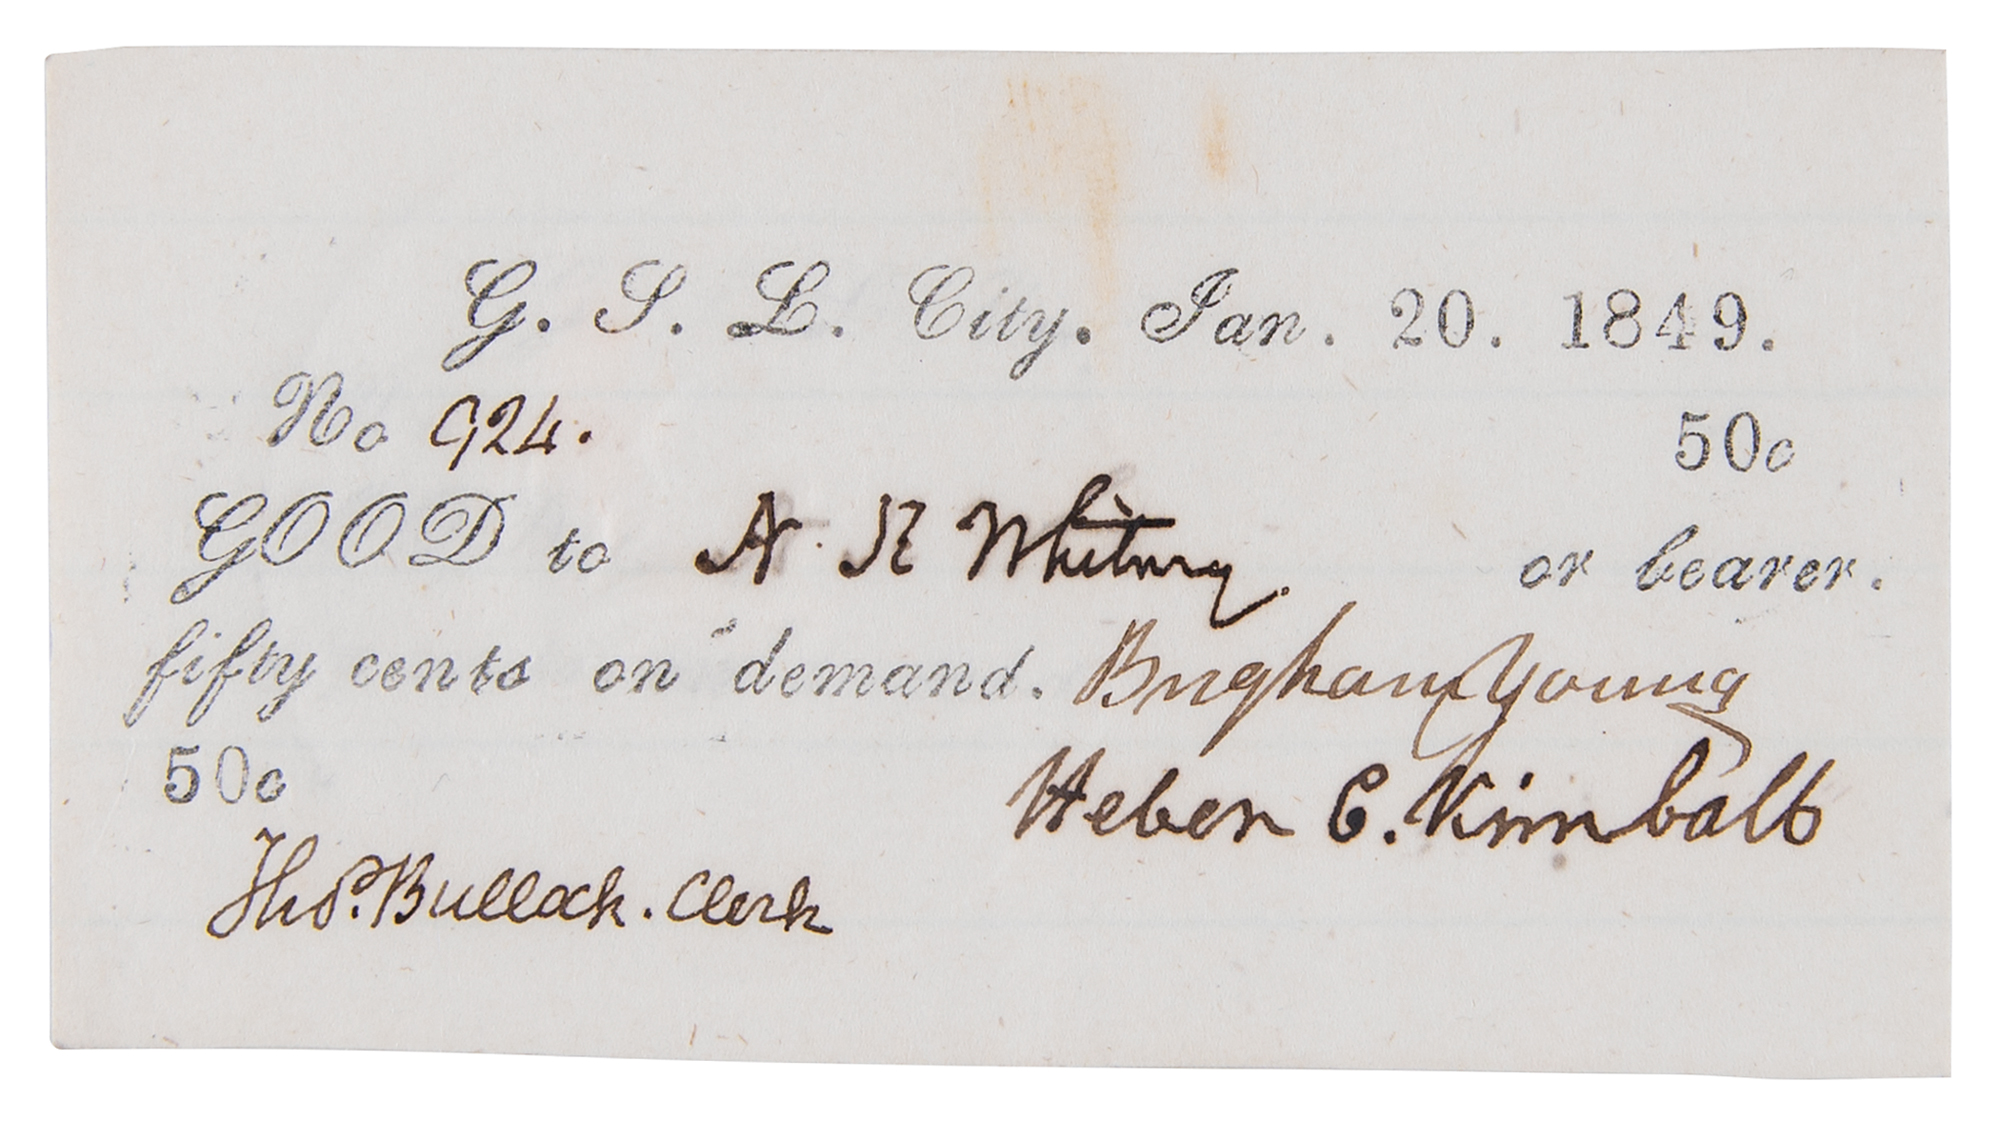 G. S. L. City. Jan. 20. 1849.
No 924. 50c
GOOD to N. K Whitney. or bearer.
fifty cents on demand. Brigham Young
50c Heber C. Kimball
Thos. Bullock. Clerk